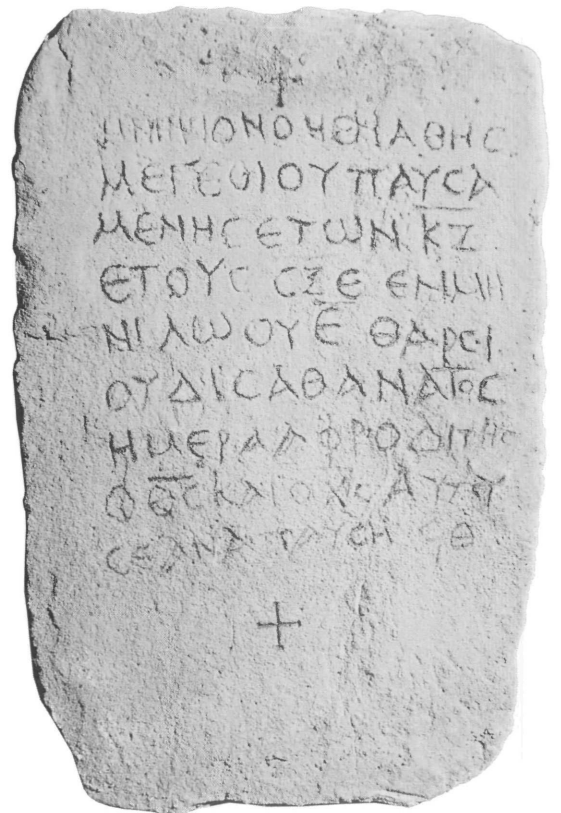 ΜΝΗΜΙΟΝ
ΜΕΓΕΘΙΟΥ ΠΑΥCΑ
ΜΕΝΗC ΕΤΩΝ ΚΖ
ΕΤΟΥC CΞΕ ΕΝ ΜΗ
ΝΙ ΛΩΟΥ Ε ΘΑΡCΙ
ΟΥΔΙC ΑΘΑΝΑΤΟC
ΗΜΕΡΑ ΑΦΡΟΔΙΤΗC
Ο ΘC ΚΑΙ Ο ΧC ΑΥΤΟΥ
CΕ ΑΝΑΠΑΥCΗ ϘΘ